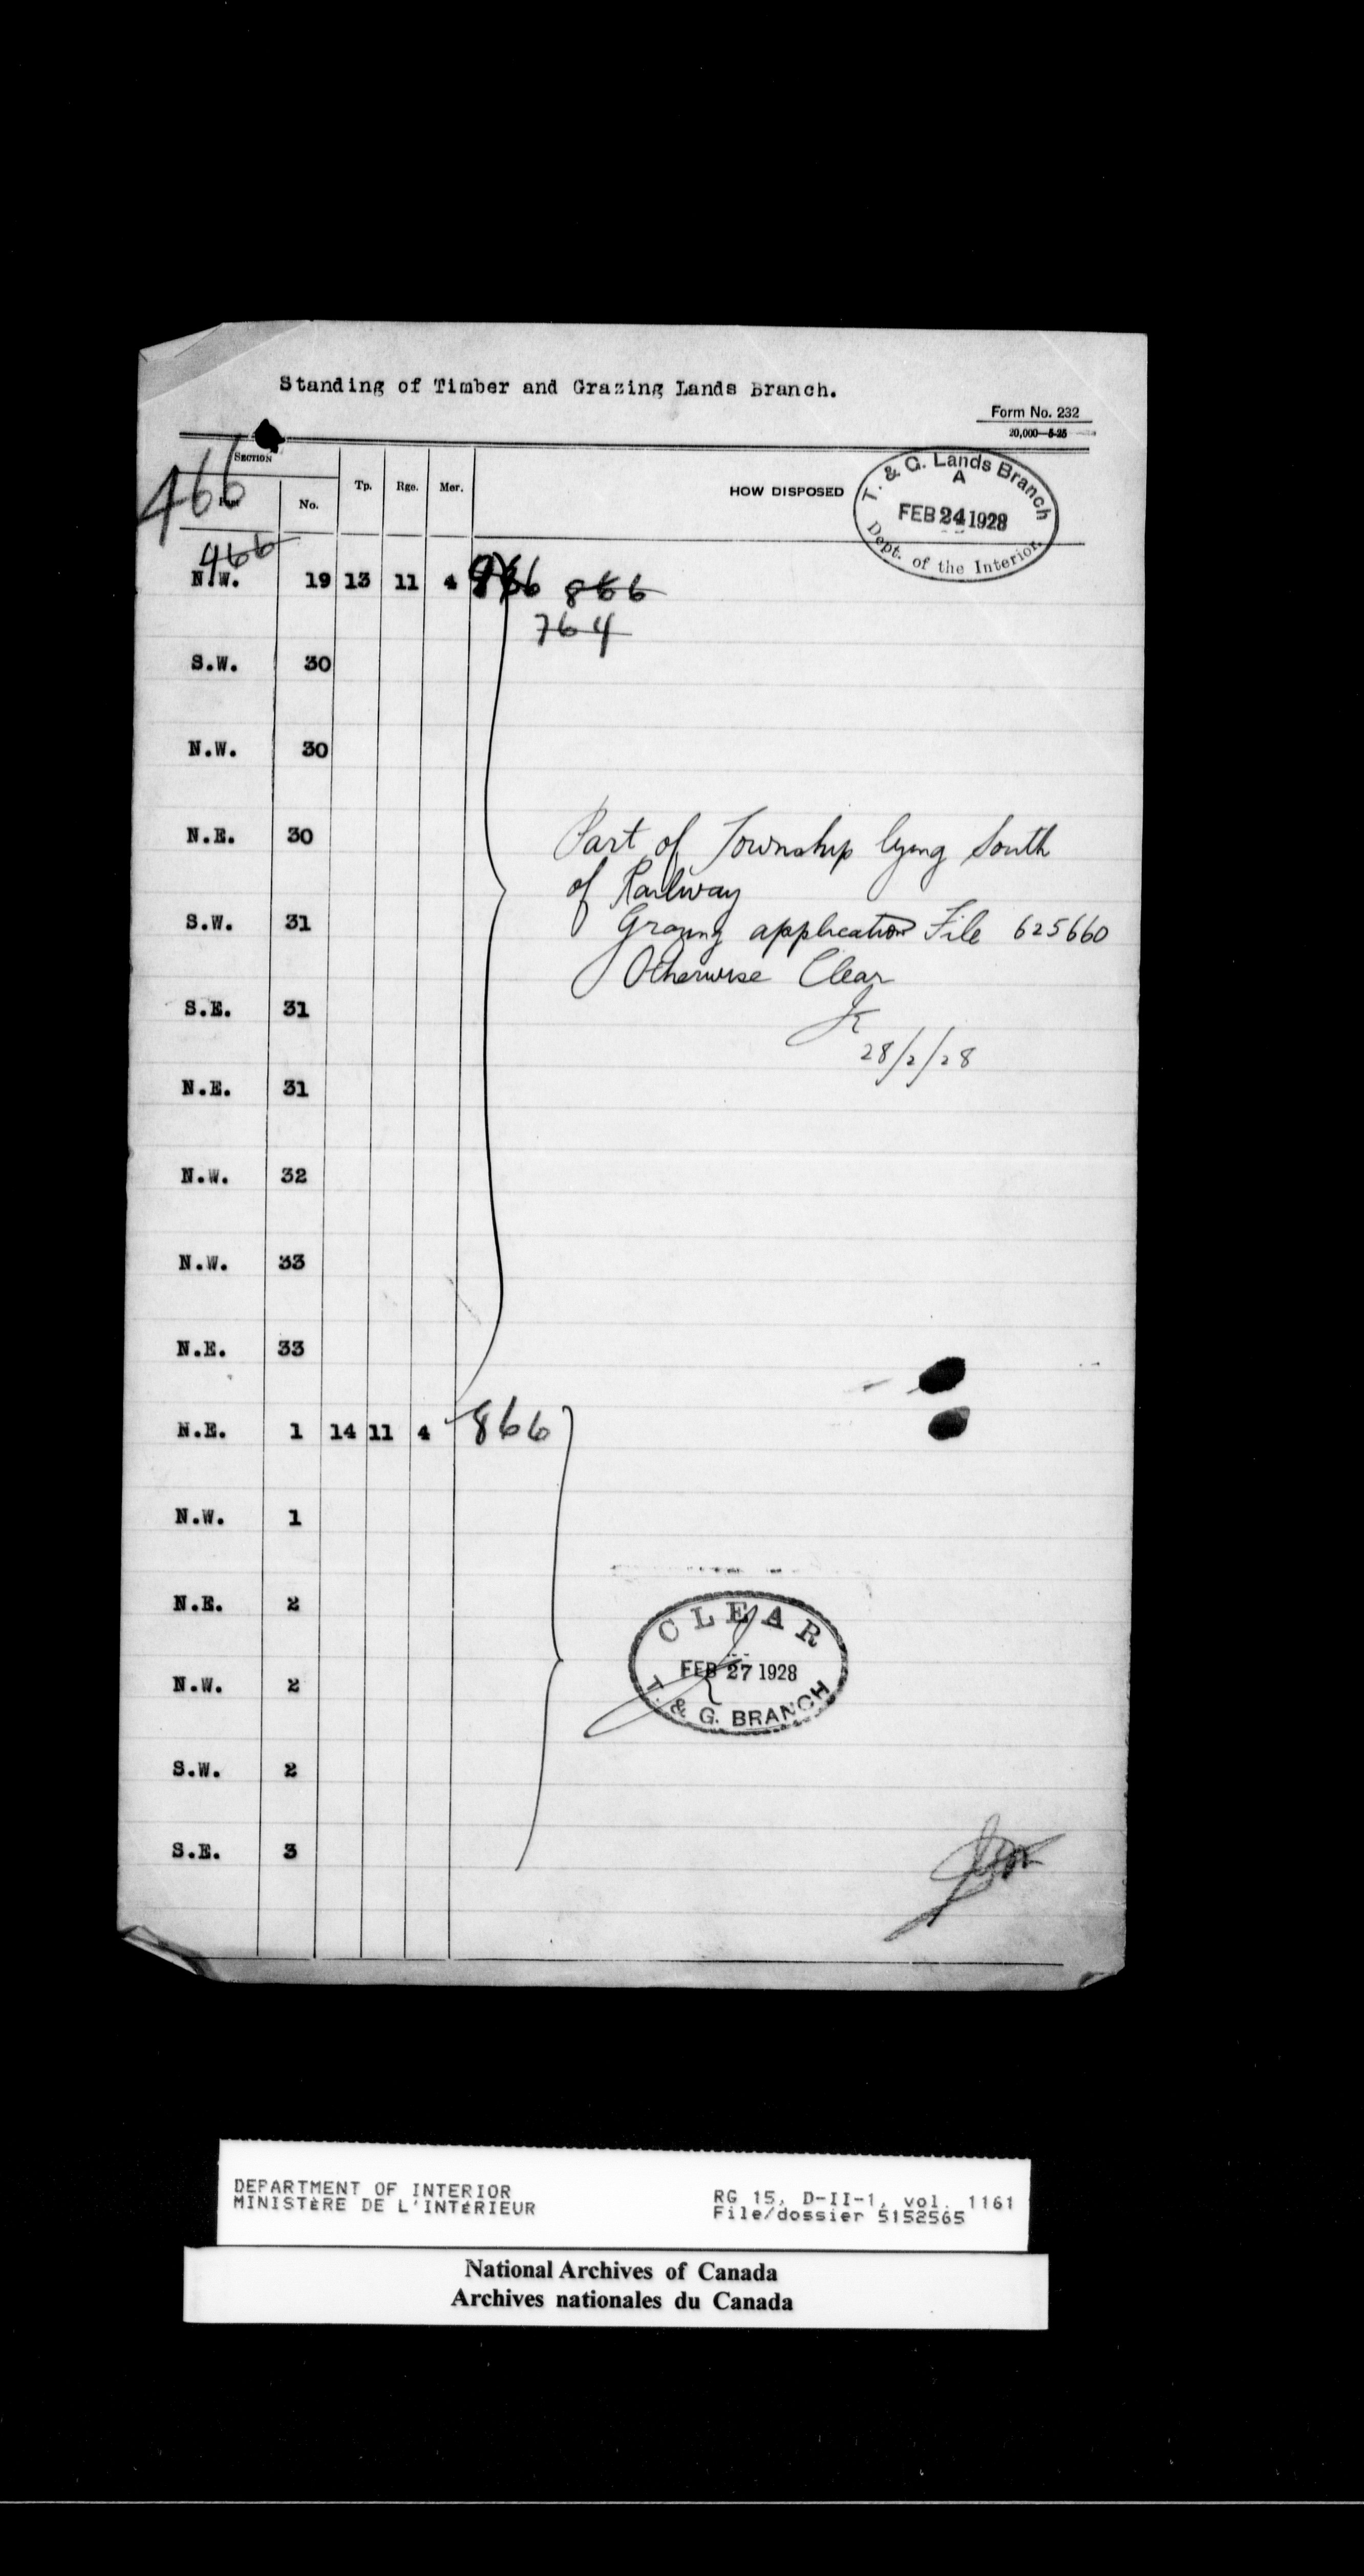 Standing of Timber and Grazing Lands Branch.
Form No. 232
20,000—5-25
SECTION
Part
No.
Tp.
Rge.
Mer.
HOW DISPOSED
T. & G. Lands Branch
A
FEB 24 1928
Dept. of the Interior.
466
466
N.W. 19 13 11 4 866
764
S.W. 30
N.W. 30
N.E. 30
Part of Township lying South
of Railway
S.W. 31
Grazing application File 625660
Otherwise Clear
S.E. 31
28/2/28
N.E. 31
N.W. 32
N.W. 33
N.E. 33
N.E. 1 14 11 4 866
N.W. 1
N.E. 2
CLEAR
FEB 27 1928
T. & G. BRANCH
N.W. 2
S.W. 2
S.E. 3
DEPARTMENT OF INTERIOR
MINISTÈRE DE L'INTÉRIEUR
RG 15, D-II-1, vol. 1161
File/dossier 5152565
National Archives of Canada
Archives nationales du Canada